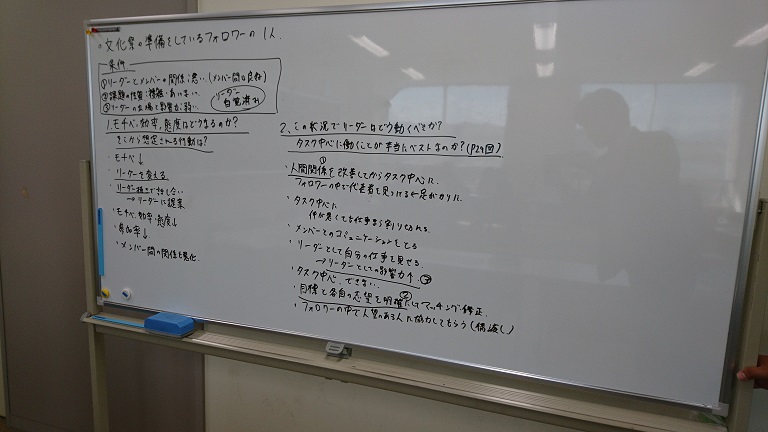 ○文化祭の準備をしているフォロワーの1人.
条件
①リーダーとメンバーの関係:悪い(メンバー間は良好)
②課題の性質:複雑・あいまい.
③リーダーの立場と影響力:弱い.
リーダー自覚済み
1. モチベ,効率,態度はどうなるのか?
そこから想定される行動は?
・モチベ↓
・リーダーを変える
・リーダー抜きで話し合い
→リーダーに提案
・モチベ,効率,態度↓
・参加率↓
・メンバー間の関係も悪化.
2. この状況でリーダーはどう動くべきか?
タスク中心に働くことが本当にベストなのか?(P29図)
①
・人間関係を改善してからタスク中心に.
フォロワーの中で代表者を見つける←足がかりに.
・タスク中心に
仲が悪くても仕事なら割り切れる.
・メンバーとのコミュニケーションをとる
・リーダーとして自分の仕事を見せる.
→リーダーとしての影響力↑.③
・タスク中心.できない…
②
・目標と各自の志望を明確にしてマッチング・修正.
・フォロワーの中で人望のある人に協力してもらう(橋渡し)